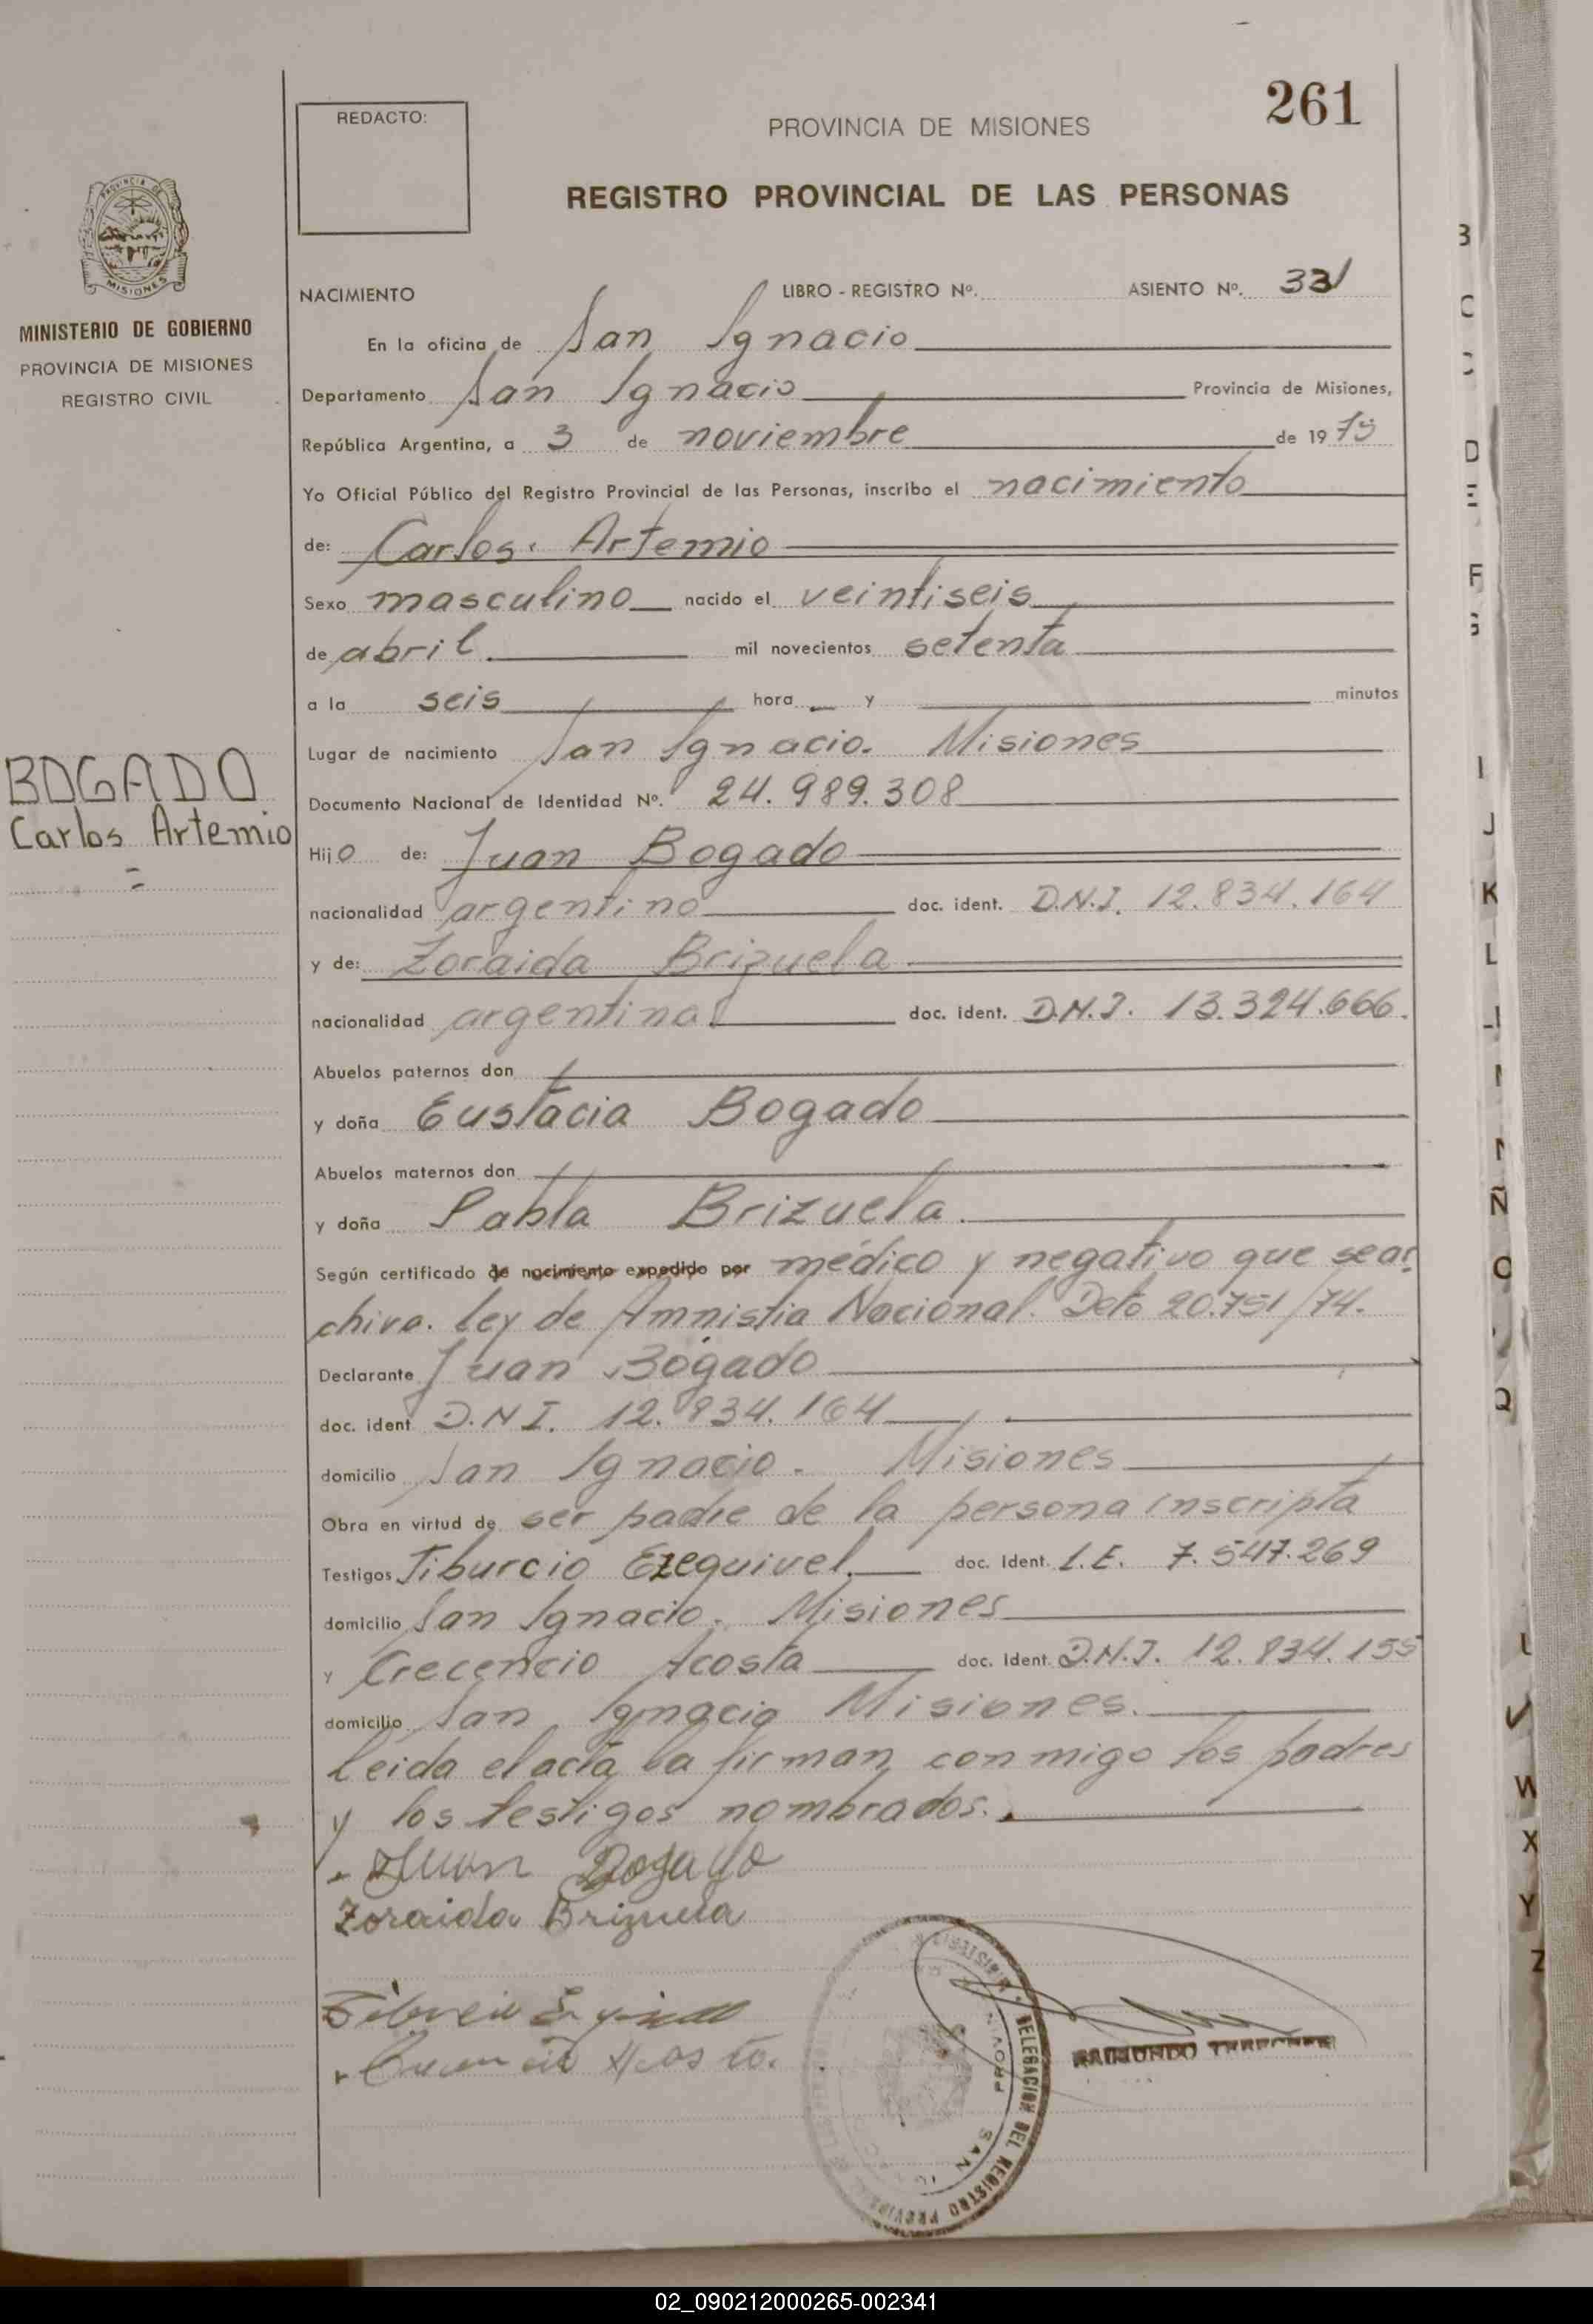 261
REDACTO:
PROVINCIA DE MISIONES
REGISTRO PROVINCIAL DE LAS PERSONAS
PROVINCIA DE
MISIONES
MINISTERIO DE GOBIERNO
PROVINCIA DE MISIONES
REGISTRO CIVIL
NACIMIENTO LIBRO - REGISTRO Nº. ASIENTO Nº. 331
En la oficina de San Ignacio
Departamento San Ignacio Provincia de Misiones,
República Argentina, a 3 de noviembre de 1975
Yo Oficial Público del Registro Provincial de las Personas, inscribo el nacimiento
de: Carlos Artemio
Sexo masculino nacido el veintiseis
de abril mil novecientos setenta
a la seis hora y minutos
Lugar de nacimiento San Ignacio. Misiones
BOGADO
Carlos Artemio
Documento Nacional de Identidad Nº. 24.989.308
Hijo de: Juan Bogado
nacionalidad argentino doc. ident. D.N.I. 12.834.164
y de: Zoraida Brizuela
nacionalidad argentina doc. ident. D.N.I. 13.324.666.
Abuelos paternos don
y doña Eustacia Bogado
Abuelos maternos don
y doña Pabla Brizuela
Según certificado de nacimiento expedido por médico y negativo que sear
chiva. Ley de Amnistia Nacional. Dcto 20.751/74.
Declarante Juan Bogado
doc. ident D.N.I. 12.834.164
domicilio San Ignacio. Misiones
Obra en virtud de ser padre de la persona inscripta
Testigos Tiburcio Ezequivel. doc. Ident. L.E. 7.547.269
domicilio San Ignacio. Misiones
y Crecencio Acosta doc. Ident. D.N.I. 12.834.155
domicilio San Ignacio Misiones.
Leida el acta la firman conmigo los padres
y los testigos nombrados.
Juan Bogado
Zoraida Brizuela
Acosta.
DELEGACION DEL REGISTRO PROVINCIAL
SAN
RAIMUNDO
B
C
D
E
F
G
I
J
K
L
Ñ
O
Q
W
X
Y
Z
02_090212000265-002341